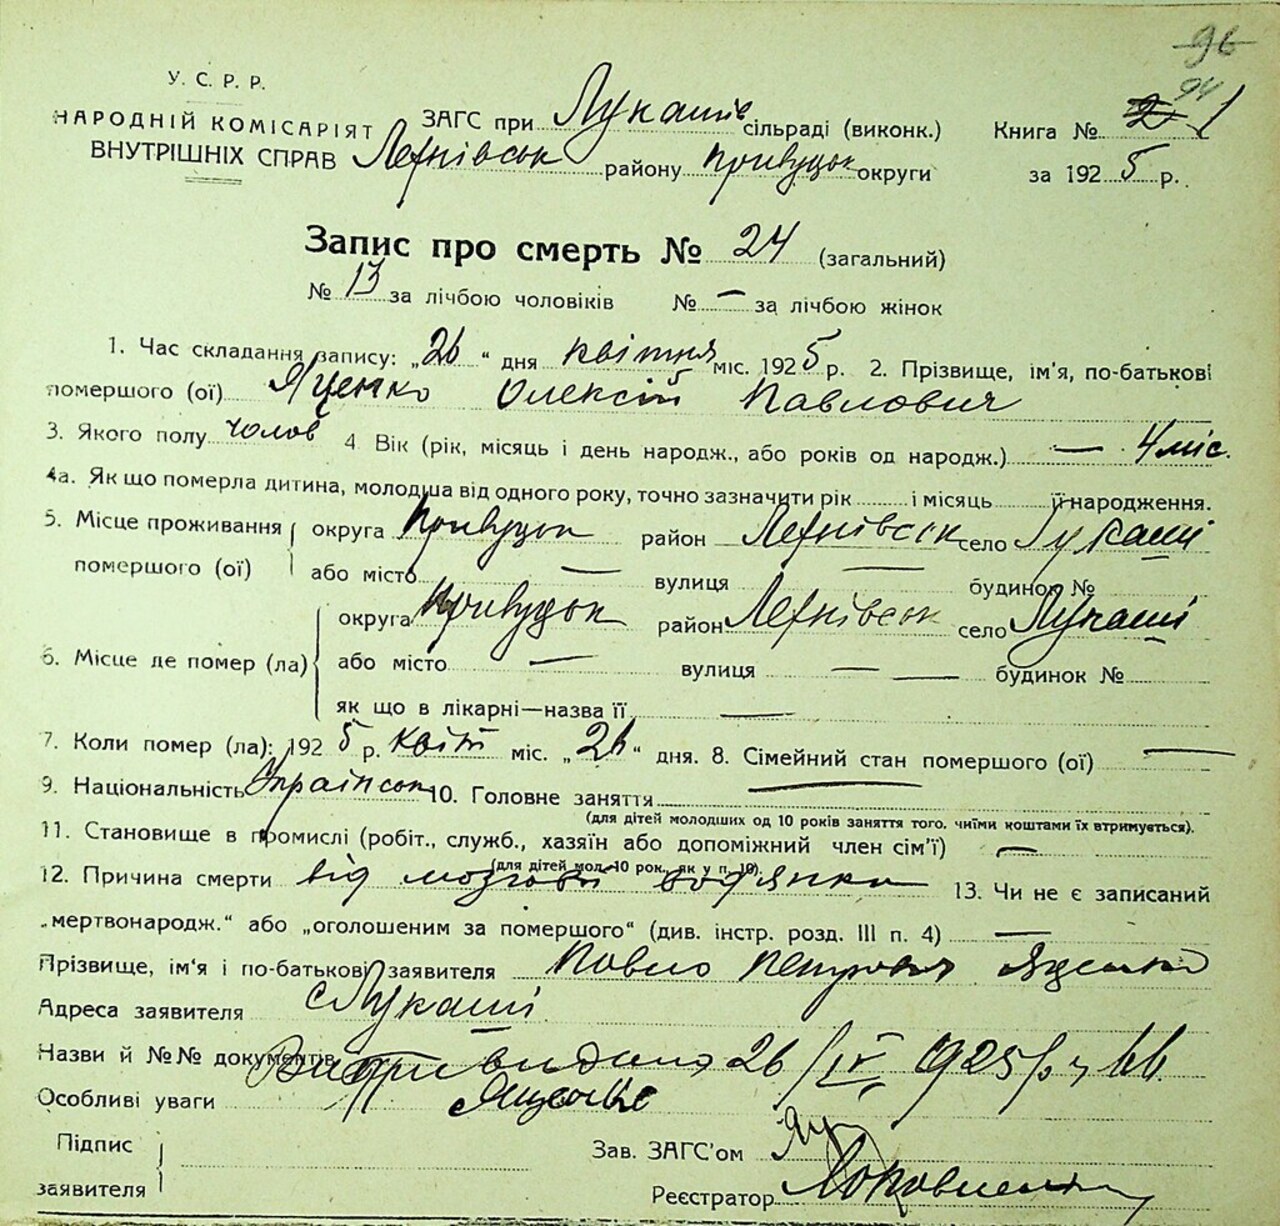 96
94
У. С. Р. Р.
НАРОДНІЙ КОМІСАРІЯТ ЗАГС при Лукашів сільраді (виконк.) Книга № 2 1
ВНУТРІШНІХ СПРАВ район у Прилуцьк округи за 1925 р.
Запис про смерть № 24 (загальний)
№ 13 за лічбою чоловіків № — за лічбою жінок
1. Час складання запису: „26“ дня квітня міс. 1925 р. 2. Прізвище, ім'я, по-батькові
помершого (ої) Яценко Олексій Павлович
3. Якого полу чолов 4 Вік (рік, місяць і день народж., або років од народж.) — 4 міс.
4а. Як що померла дитина, молодша від одного року, точно зазначити рік і місяць її народження.
5. Місце проживання округа Прилуцьк район село Лукаші
помершого (ої) або місто — вулиця — будинок №
округа Прилуцьк район село Лукаші
6. Місце де помер (ла) або місто — вулиця — будинок №
як що в лікарні—назва її —
7. Коли помер (ла): 1925 р. квіт міс. „26“ дня. 8. Сімейний стан помершого (ої) —
9. Національність Українськ 10. Головне заняття —
(для дітей молодших од 10 років заняття того, чиїми коштами їх втримується).
11. Становище в промислі (робіт., служб., хазяїн або допоміжний член сім'ї) —
(для дітей мол. 10 рок., як у п. 10).
12. Причина смерти від мозгові водянки 13. Чи не є записаний
„мертвонародж.“ або „оголошеним за помершого“ (див. інстр. розд. III п. 4) —
Прізвище, ім'я і по-батькові заявителя Павло Петрович Яценко
Адреса заявителя с Лукаші
Назви й №№ документів видано 26/IV 1925 р
Особливі уваги Яценко
Підпис Зав. ЗАГС'ом
заявителя Реєстратор